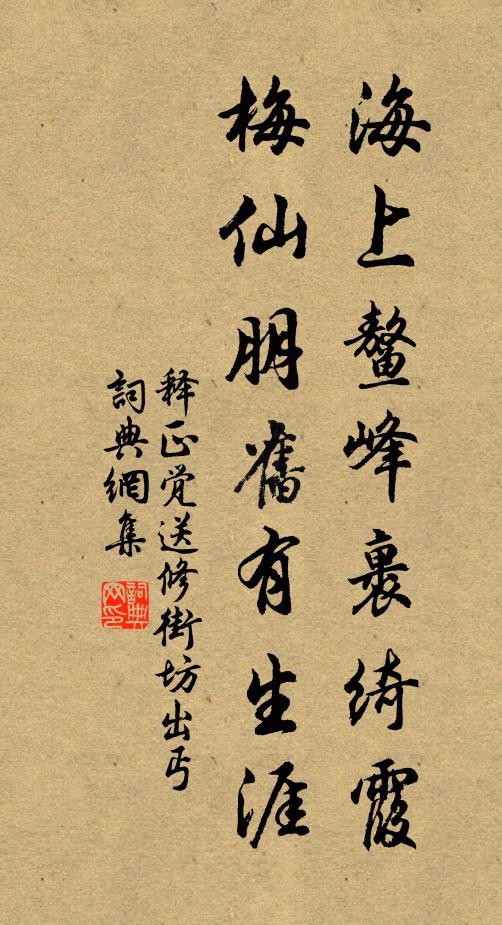 海上鳌峰裹绮霞
梅仙朋舊有生涯
释正觉送修街坊出丐
詞典網集
詞典网印